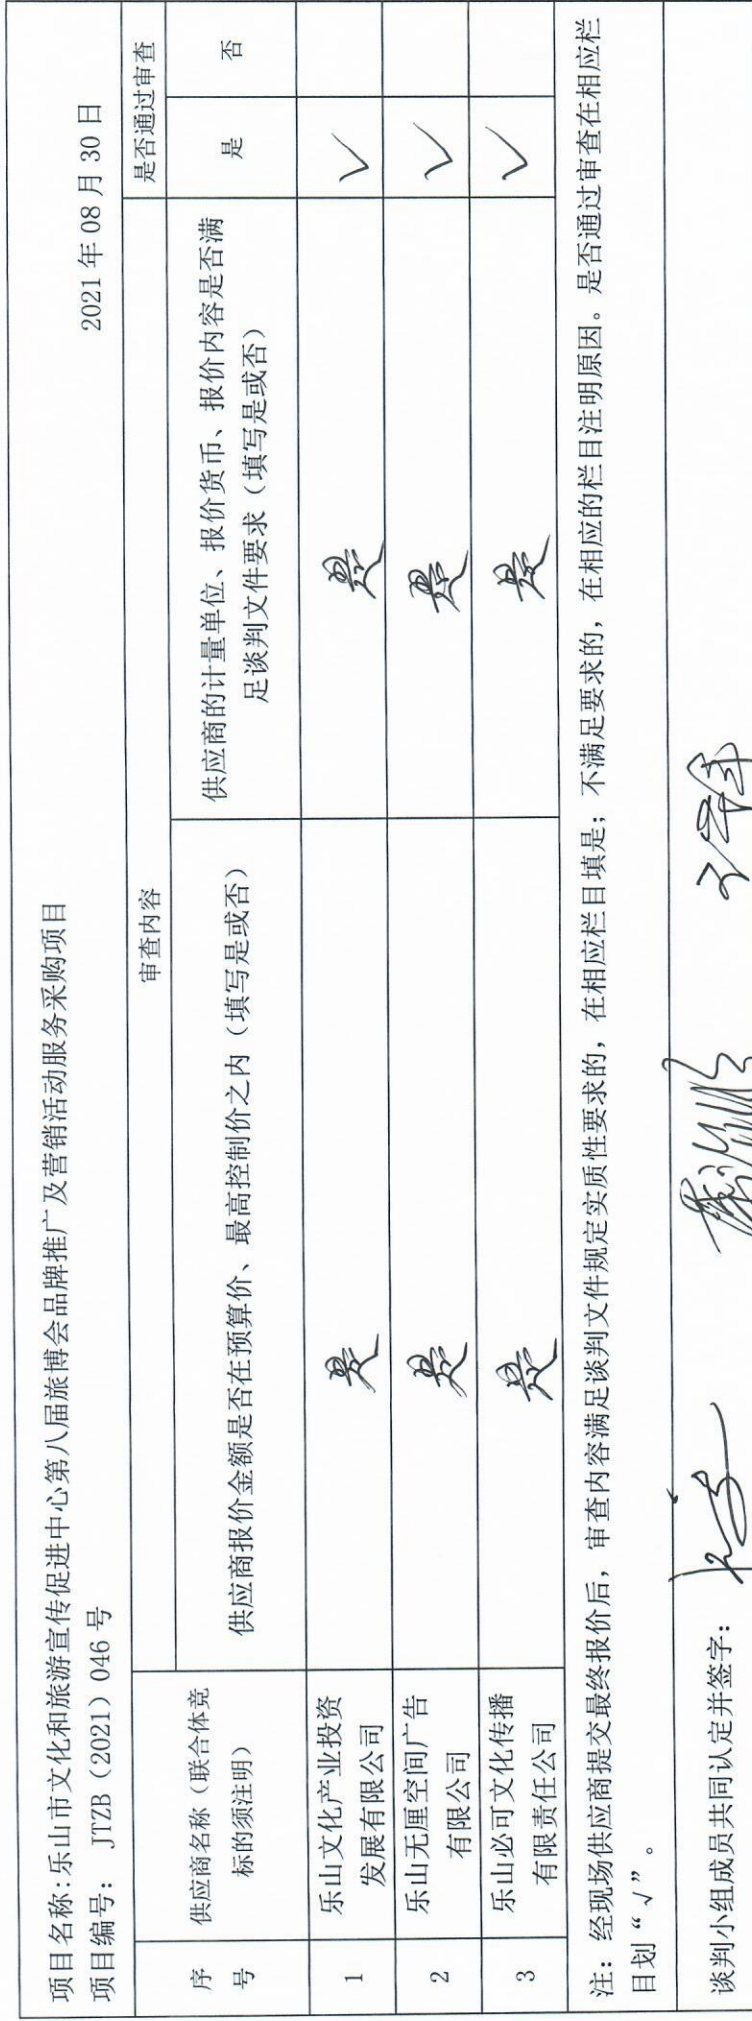 项目名称:乐山市文化和旅游宣传促进中心第八届旅博会品牌推广及营销活动服务采购项目
项目编号：JTZB（2021）046 号
2021 年 08 月 30 日
序号
供应商名称（联合体竞
标的须注明）
审查内容
是否通过审查
供应商报价金额是否在预算价、最高控制价之内（填写是或否）
供应商的计量单位、报价货币、报价内容是否满
足谈判文件要求（填写是或否）
是
否
1
乐山文化产业投资
发展有限公司
是
是
√
2
乐山无厘空间广告
有限公司
是
是
√
3
乐山必可文化传播
有限责任公司
是
是
√
注：经现场供应商提交最终报价后，审查内容满足谈判文件规定实质性要求的，在相应栏目填是；不满足要求的，在相应的栏目注明原因。是否通过审查在相应栏
目划“√”。
谈判小组成员共同认定并签字：